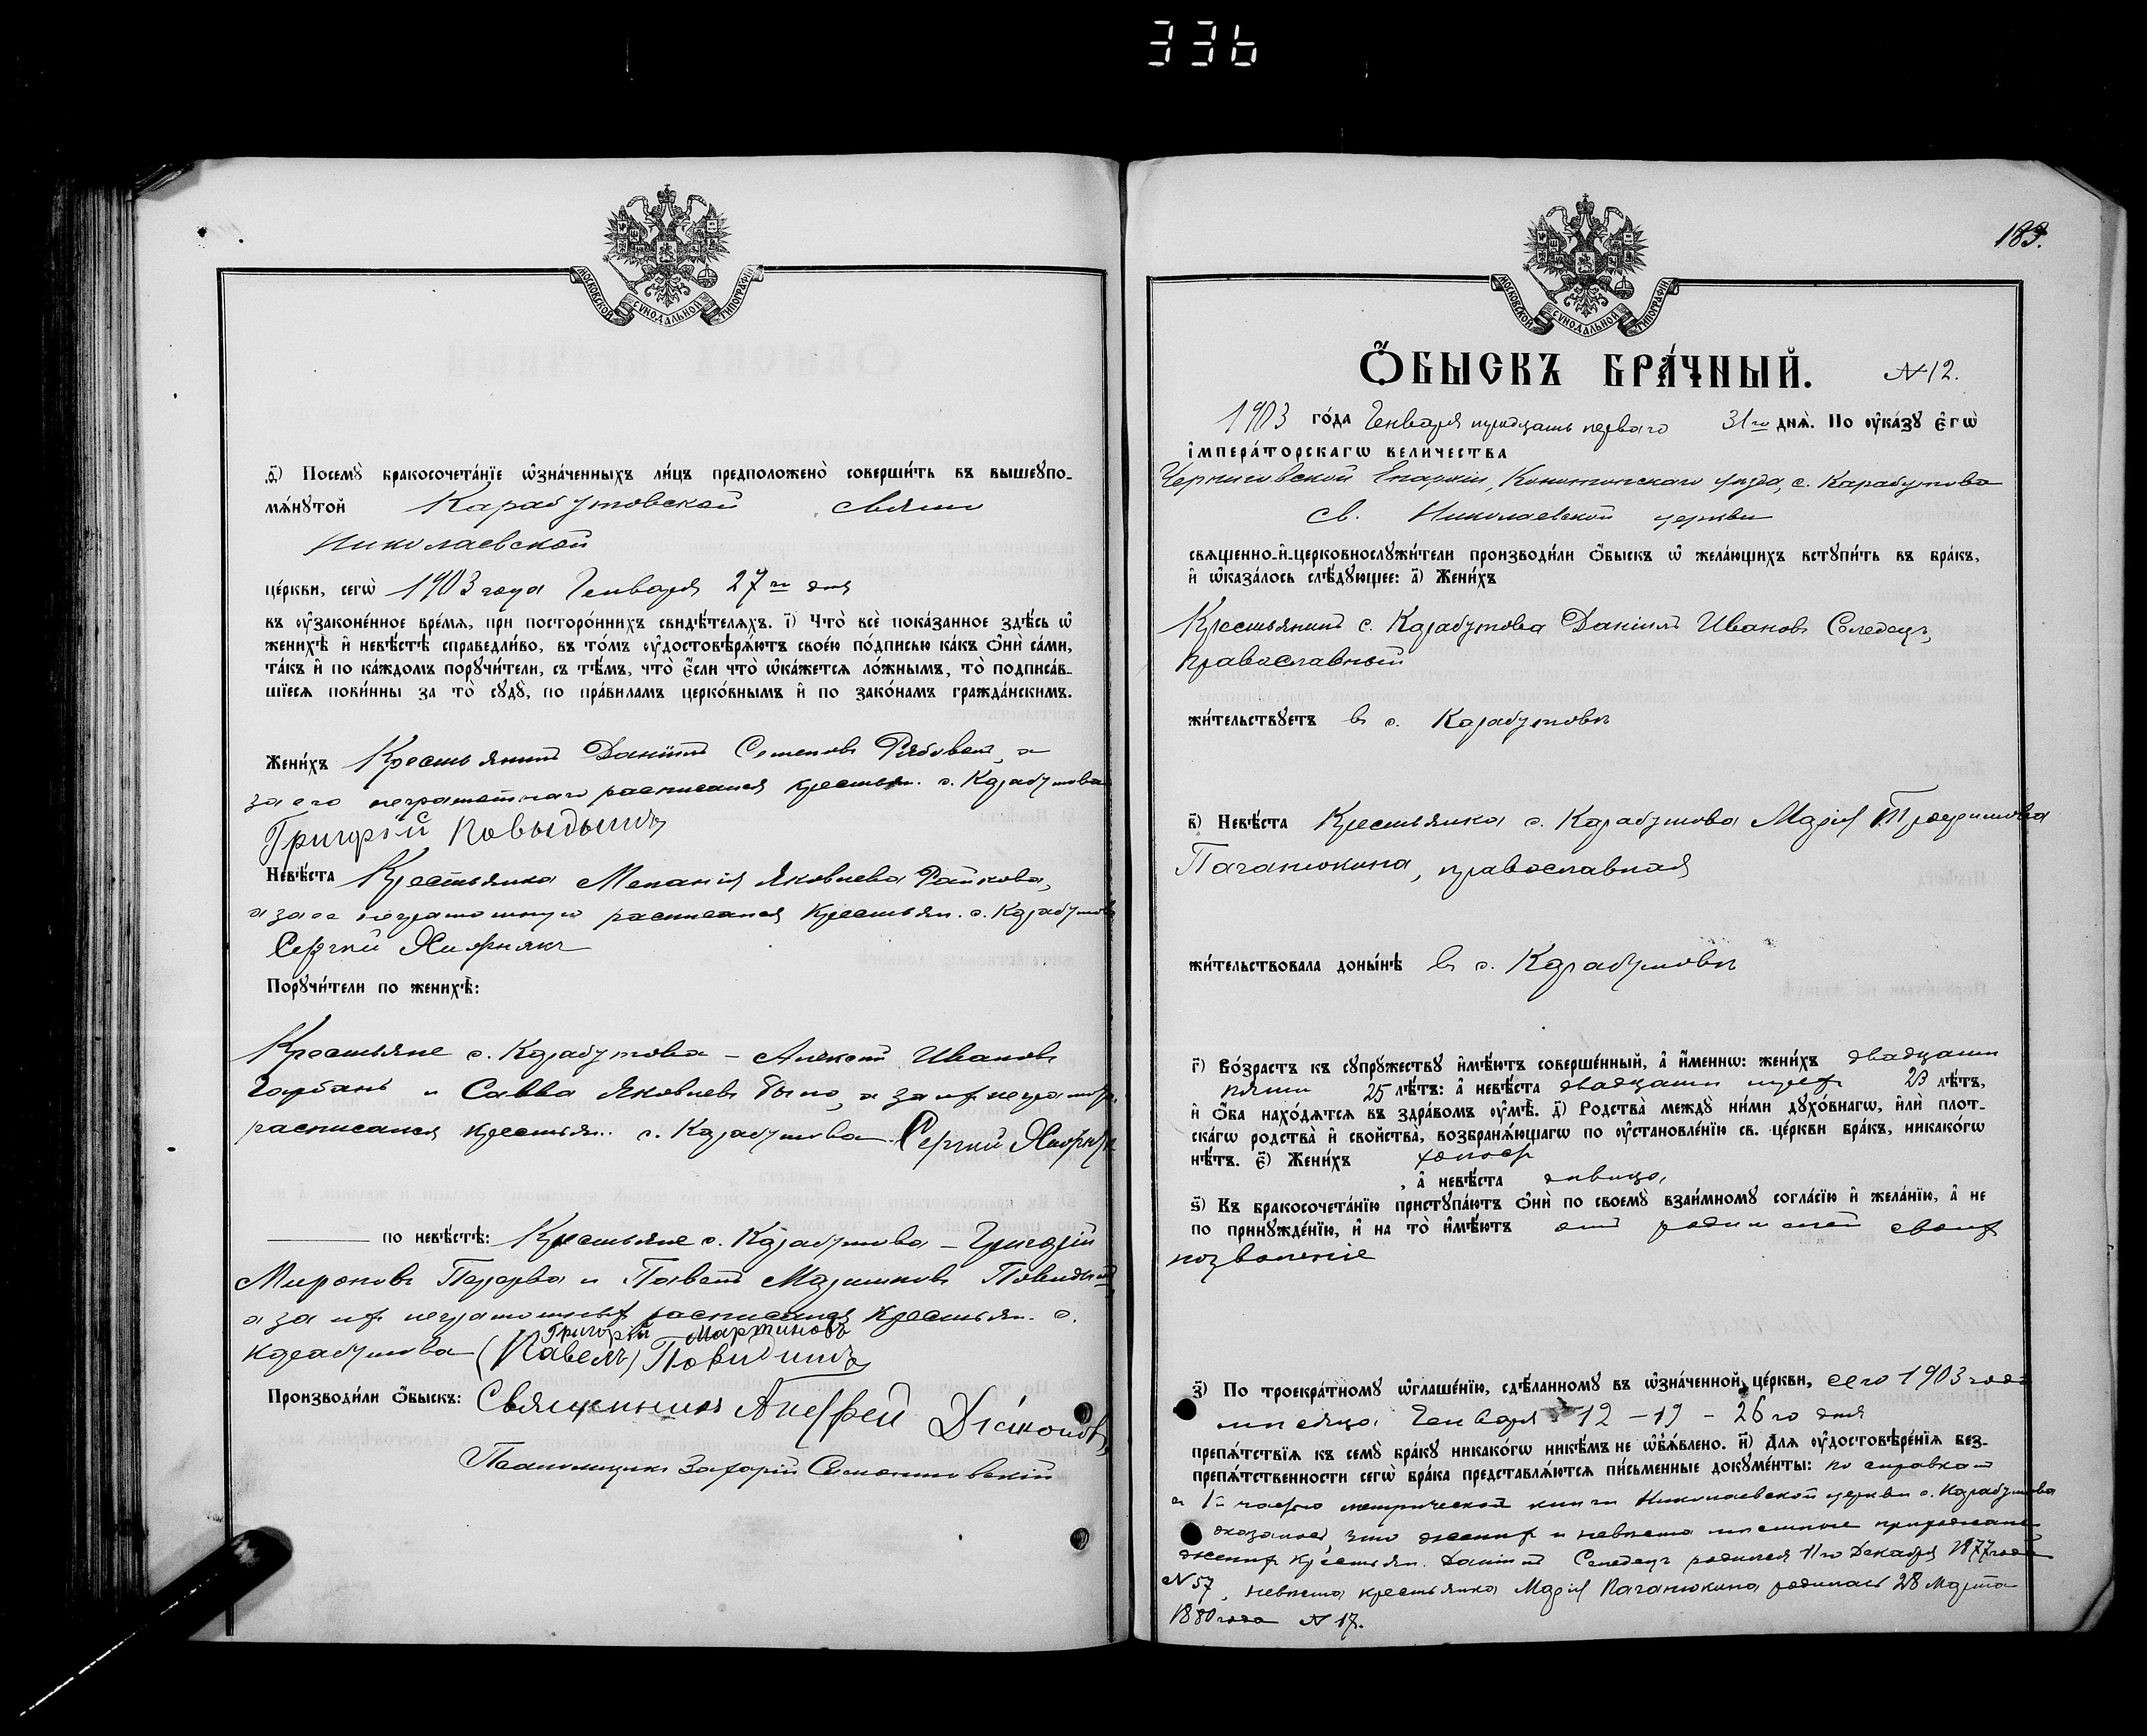 336
МОСКОВСКОЙ СѴНОДАЛЬНОЙ ТИПОГРАФІИ
д҃) Посемꙋ̀ бракосочета́нїе ѡ҆зна́ченныхъ ли́цъ предположено̀ соверши́ть въ вышеꙋпо-
мѧ́нꙋтой Карабутовской свято
Николаевской
це́ркви, сегѡ̀ 1903 года Генваря 27го дня
въ ᲂу҆законе́нное вре́мѧ, при посторо́ннихъ свидѣ́телѧхъ. і҃) Что̀ всѐ пока́занное здѣ́сь ѡ҆
женихѣ̀ и҆ невѣ́стѣ справедли́во, въ то́мъ ᲂу҆достовѣрѧ́ютъ свое́ю по́дписью ка́къ ѻ҆нѝ са́ми,
та́къ и҆ по ка́ждомъ порꙋчи́тели, съ тѣ́мъ, что̀ є҆́сли что̀ ѡ҆ка́жетсѧ ло́жнымъ, то̀ подписа́в-
шїесѧ пови́нны за то̀ сꙋдꙋ̀, по пра́виламъ церко́внымъ и҆ по зако́намъ гражда́нскимъ.
Жени́хъ Крестьянинъ Даніилъ Семеновъ Рябовол, а
за его неграмотнаго расписался крестьян. с. Карабутова
Григорій Повыдышъ
Невѣ́ста Крестьянка Меланія Яковлева Рапкова,
а за ее неграмотную расписался крестьян. с. Карабутова
Сергѣй Хиврнякъ
Порꙋчи́тели по женихѣ̀:
Крестьяне с. Карабутова – Алексѣй Ивановъ
Горбань и Савва Яковлевъ Было, а за ихъ неграмотн.
расписался крестьян. с. Карабутова Сергѣй
по невѣ́стѣ: Крестьяне с. Карабутова – Григорій
Мироновъ Перерва и Павелъ Мартиновъ
а за ихъ неграмотныхъ расписался крестьян. с.
Григорій Мартиновъ
Карабутова (Павелъ) Повидишъ
Производи́ли ѻ҆́быскъ: Священникъ Андрей Діаконовъ
Псаломщикъ Захарій
183.
МОСКОВСКОЙ СѴНОДАЛЬНОЙ ТИПОГРАФІИ
Ѻ҆́БЫСКЪ БРА́ЧНЫЙ. №12.
1903 го́да Генваря тридцать перваго 31го днѧ̀. По ᲂу҆ка́зꙋ є҆гѡ̀
і҆мпера́торскагѡ вели́чества
Черниговской Епархіи, Конотопскаго уѣзда, с. Карабутова
св. Николаевской церкви
свѧщенно-и҆-церковнослꙋжи́тели производи́ли ѻ҆́быскъ ѡ҆ жела́ющихъ встꙋпи́ть въ бра́къ,
и҆ ѡ҆каза́лось слѣ́дꙋющее: а҃) Жени́хъ
Крестьянинъ с. Карабутова Даніилъ Ивановъ Селедецъ,
православный
жи́тельствꙋетъ въ с. Карабутовѣ
в҃) Невѣ́ста Крестьянка с. Карабутова Марія Трофимова
Паганюкина, православная
жи́тельствовала доны́нѣ въ с. Карабутовѣ
г҃) Во́зрастъ къ сꙋпрꙋ́жествꙋ и҆мѣ́ютъ соверше́нный, а҆ и҆́меннѡ: жени́хъ двадцати
пяти 25 лѣ́тъ: а҆ невѣ́ста двадцати трехъ 23 лѣ́тъ,
и҆ ѻ҆́ба нахо́дѧтсѧ въ здра́вомъ ᲂу҆мѣ̀. д҃) Родства̀ междꙋ̀ ни́ми дꙋхо́внагѡ, и҆лѝ плот-
ска́гѡ родства̀ и҆ сво́йства, возбранѧ́ющагѡ по ᲂу҆становле́нїю св. це́ркви бра́къ, никако́гѡ
нѣ́тъ. є҃) Жени́хъ холостъ
, а҆ невѣ́ста дѣвица,
ѕ҃) Къ бракосочета́нїю пристꙋпа́ютъ ѻ҆нѝ по своемꙋ̀ взаи́мномꙋ согла́сїю и҆ жела́нїю, а҆ не
по принꙋжде́нїю, и҆ на то̀ и҆мѣ́ютъ отъ родителей своихъ
позволеніе
з҃) По троекра́тномꙋ ѡ҆глаше́нїю, сдѣ́ланномꙋ въ ѡ҆зна́ченной це́ркви, сего 1903 года
мѣсяца Генваря 12 – 19 – 26го дня
препѧ́тствїѧ къ семꙋ̀ бра́кꙋ никако́гѡ никѣ́мъ не ѡ҆б̾ѧ́влено. и҃) Длѧ ᲂу҆достовѣре́нїѧ без-
препѧ́тственности сегѡ̀ бра́ка представлѧ́ютсѧ пи́сьменные докꙋме́нты: по справкамъ
съ 1й частью метрической книги Николаевской церкви с. Карабутова
оказалось, что женихъ и невѣста мѣстные прихожане
женихъ крестьян. Даніилъ Селедецъ родился 11го Декабря 1877 года
№57, невѣста крестьянка Марія Паганюкина родилась 28 Марта
1880 года №17.